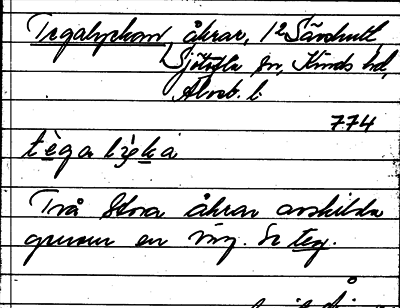 Tegalyckan, åkrar, 1/2 Särshult
Sjötofta sn, Kinds hd,
Älvsb. l.
774
tè̱ga lỳka
Två stora åkrar avskilda
genom en väg. Se teg.